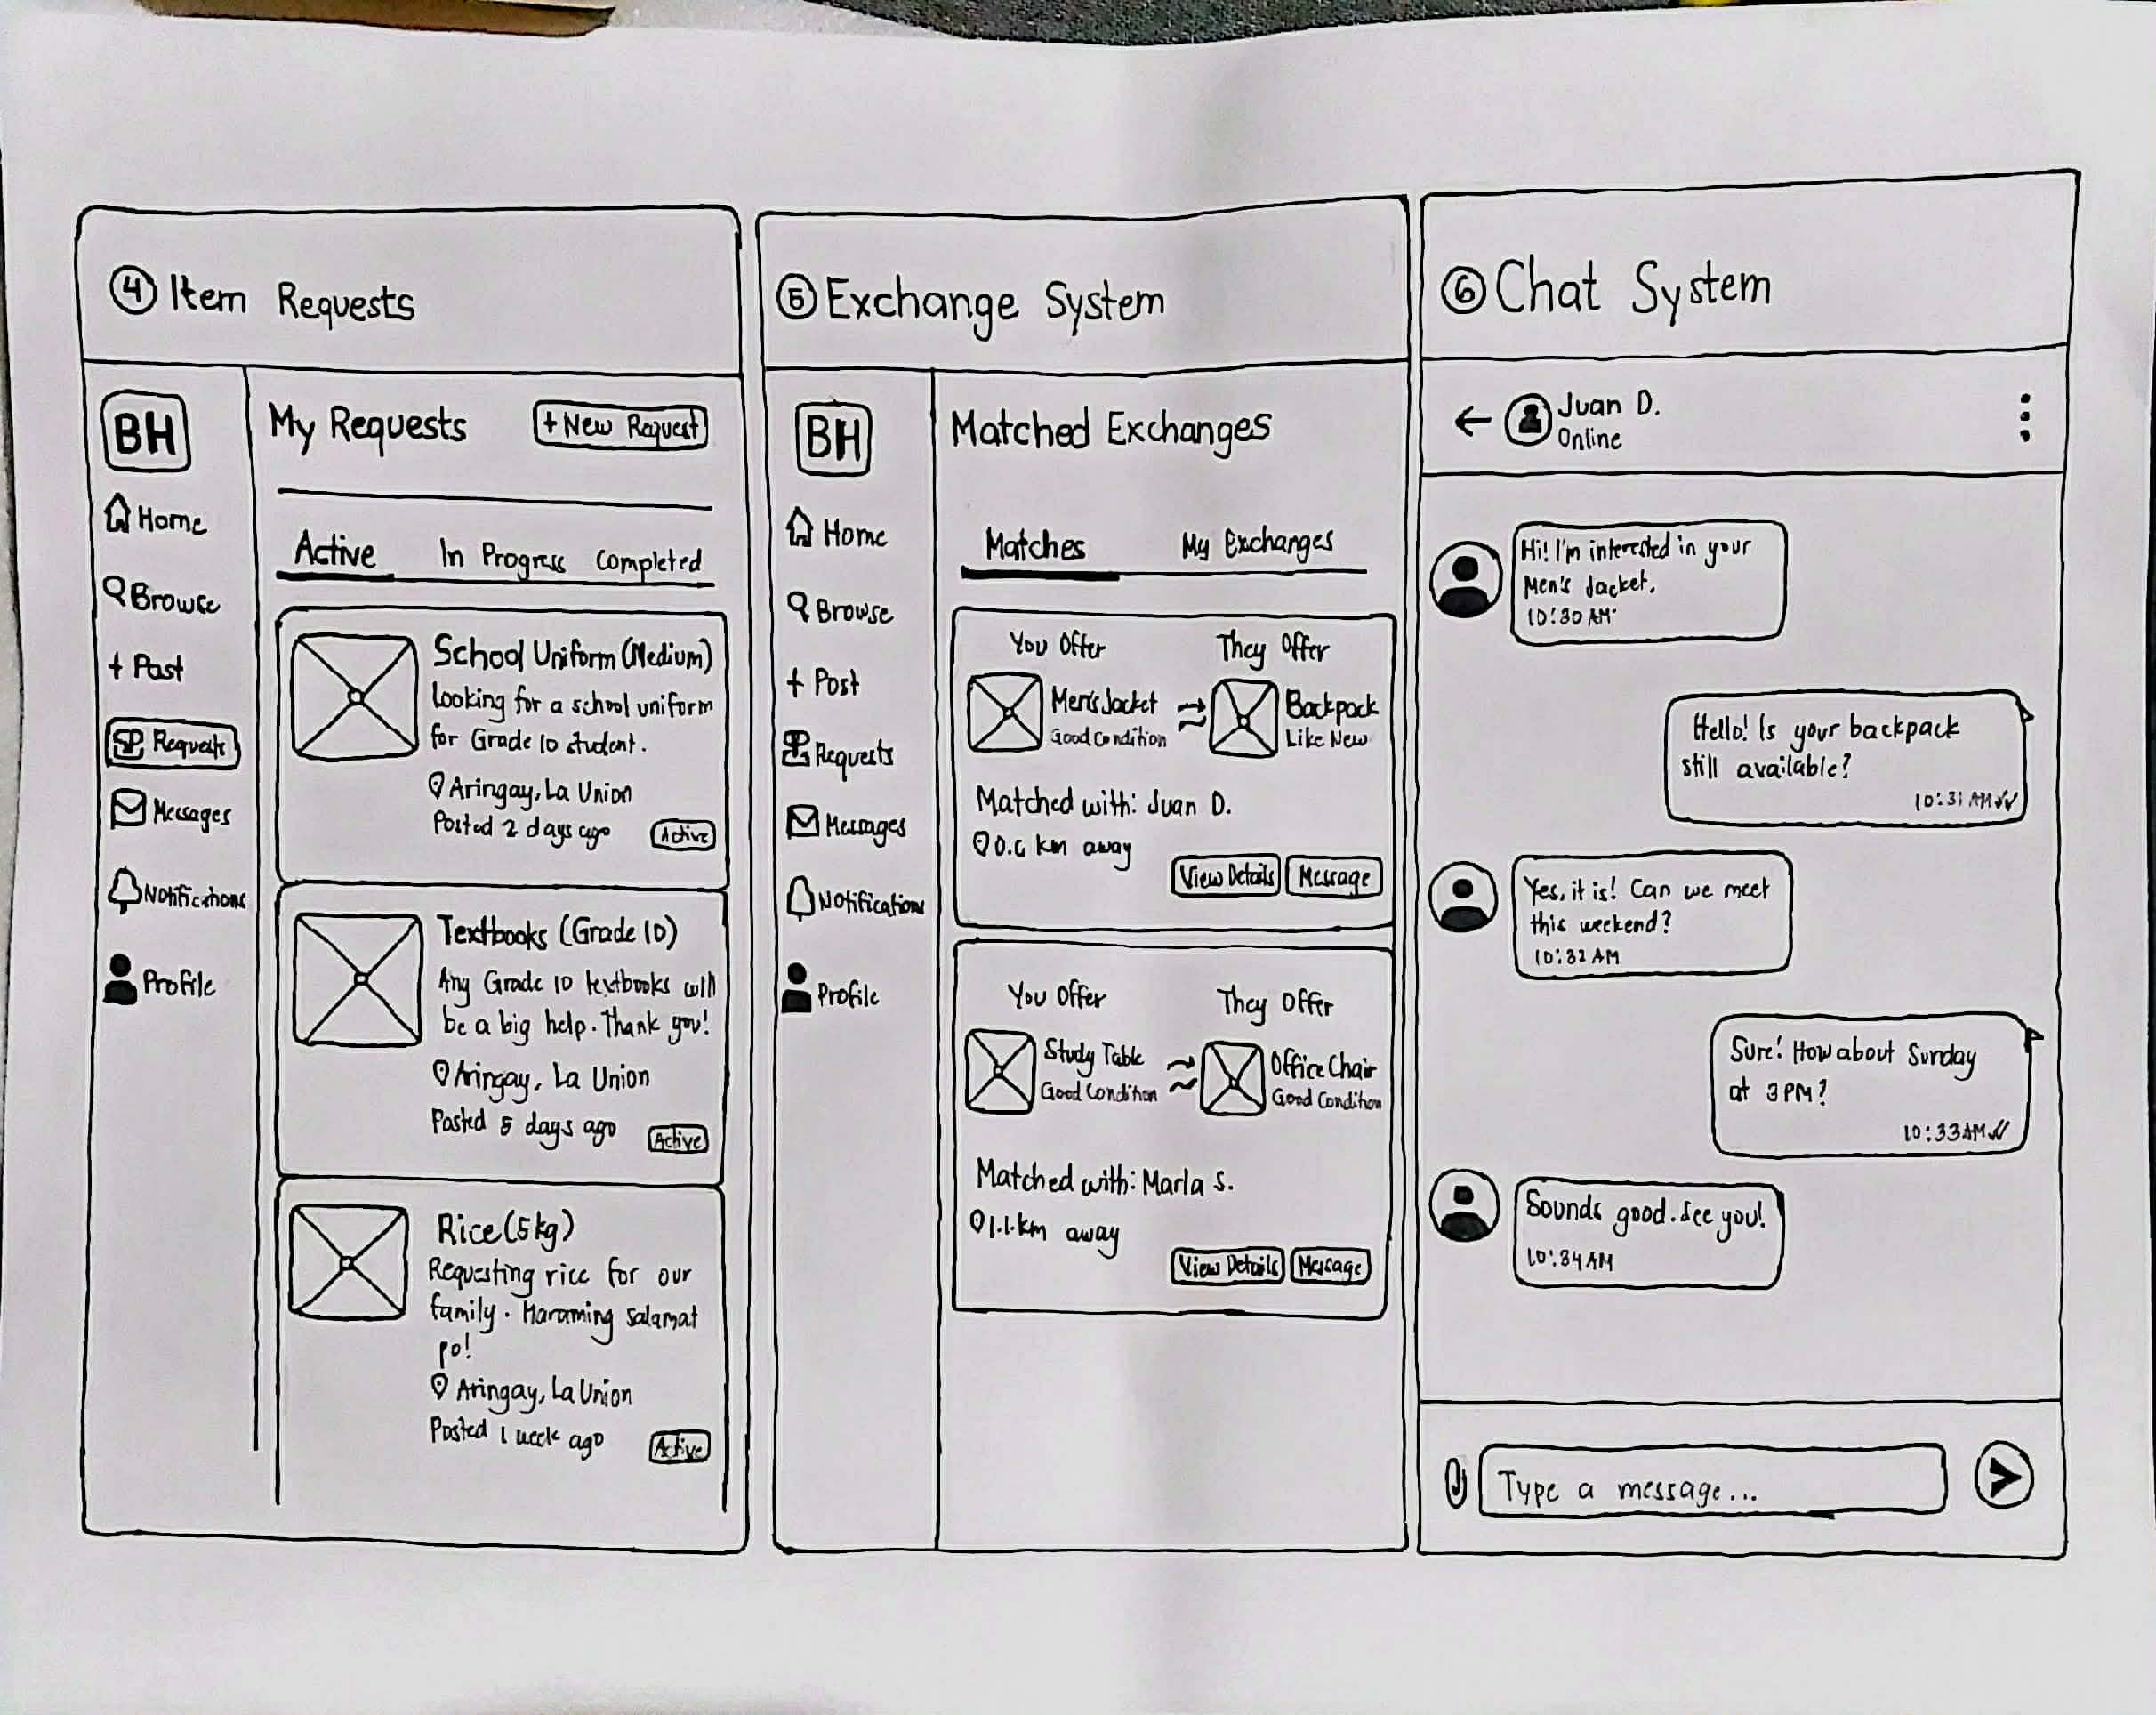 ④ Item Requests
BH
Home
Browse
+ Post
Requests
Messages
Notifications
Profile
My Requests
+ New Request
Active In Progress Completed
School Uniform (Medium)
Looking for a school uniform
for Grade 10 student.
Aringay, La Union
Posted 2 days ago
Active
Textbooks (Grade 10)
Any Grade 10 textbooks will
be a big help. Thank you!
Aringay, La Union
Posted 5 days ago
Active
Rice (5kg)
Requesting rice for our
family. Maraming salamat
po!
Aringay, La Union
Posted 1 week ago
Active
⑤ Exchange System
BH
Home
Browse
+ Post
Requests
Messages
Notifications
Profile
Matched Exchanges
Matches My Exchanges
You Offer They Offer
Men's Jacket Backpack
Good Condition Like New
Matched with: Juan D.
km away
View Details Message
You Offer They Offer
Study Table Office Chair
Good Condition Good Condition
Matched with: Marla S.
1.1 km away
View Details Message
⑥ Chat System
← Juan D.
Online
Hi! I'm interested in your
Men's Jacket.
10:30 AM
Hello! Is your backpack
still available?
10:31 AM
Yes, it is! Can we meet
this weekend?
10:32 AM
Sure! How about Sunday
at 3 PM?
10:33 AM
Sounds good. See you!
10:34 AM
Type a message...